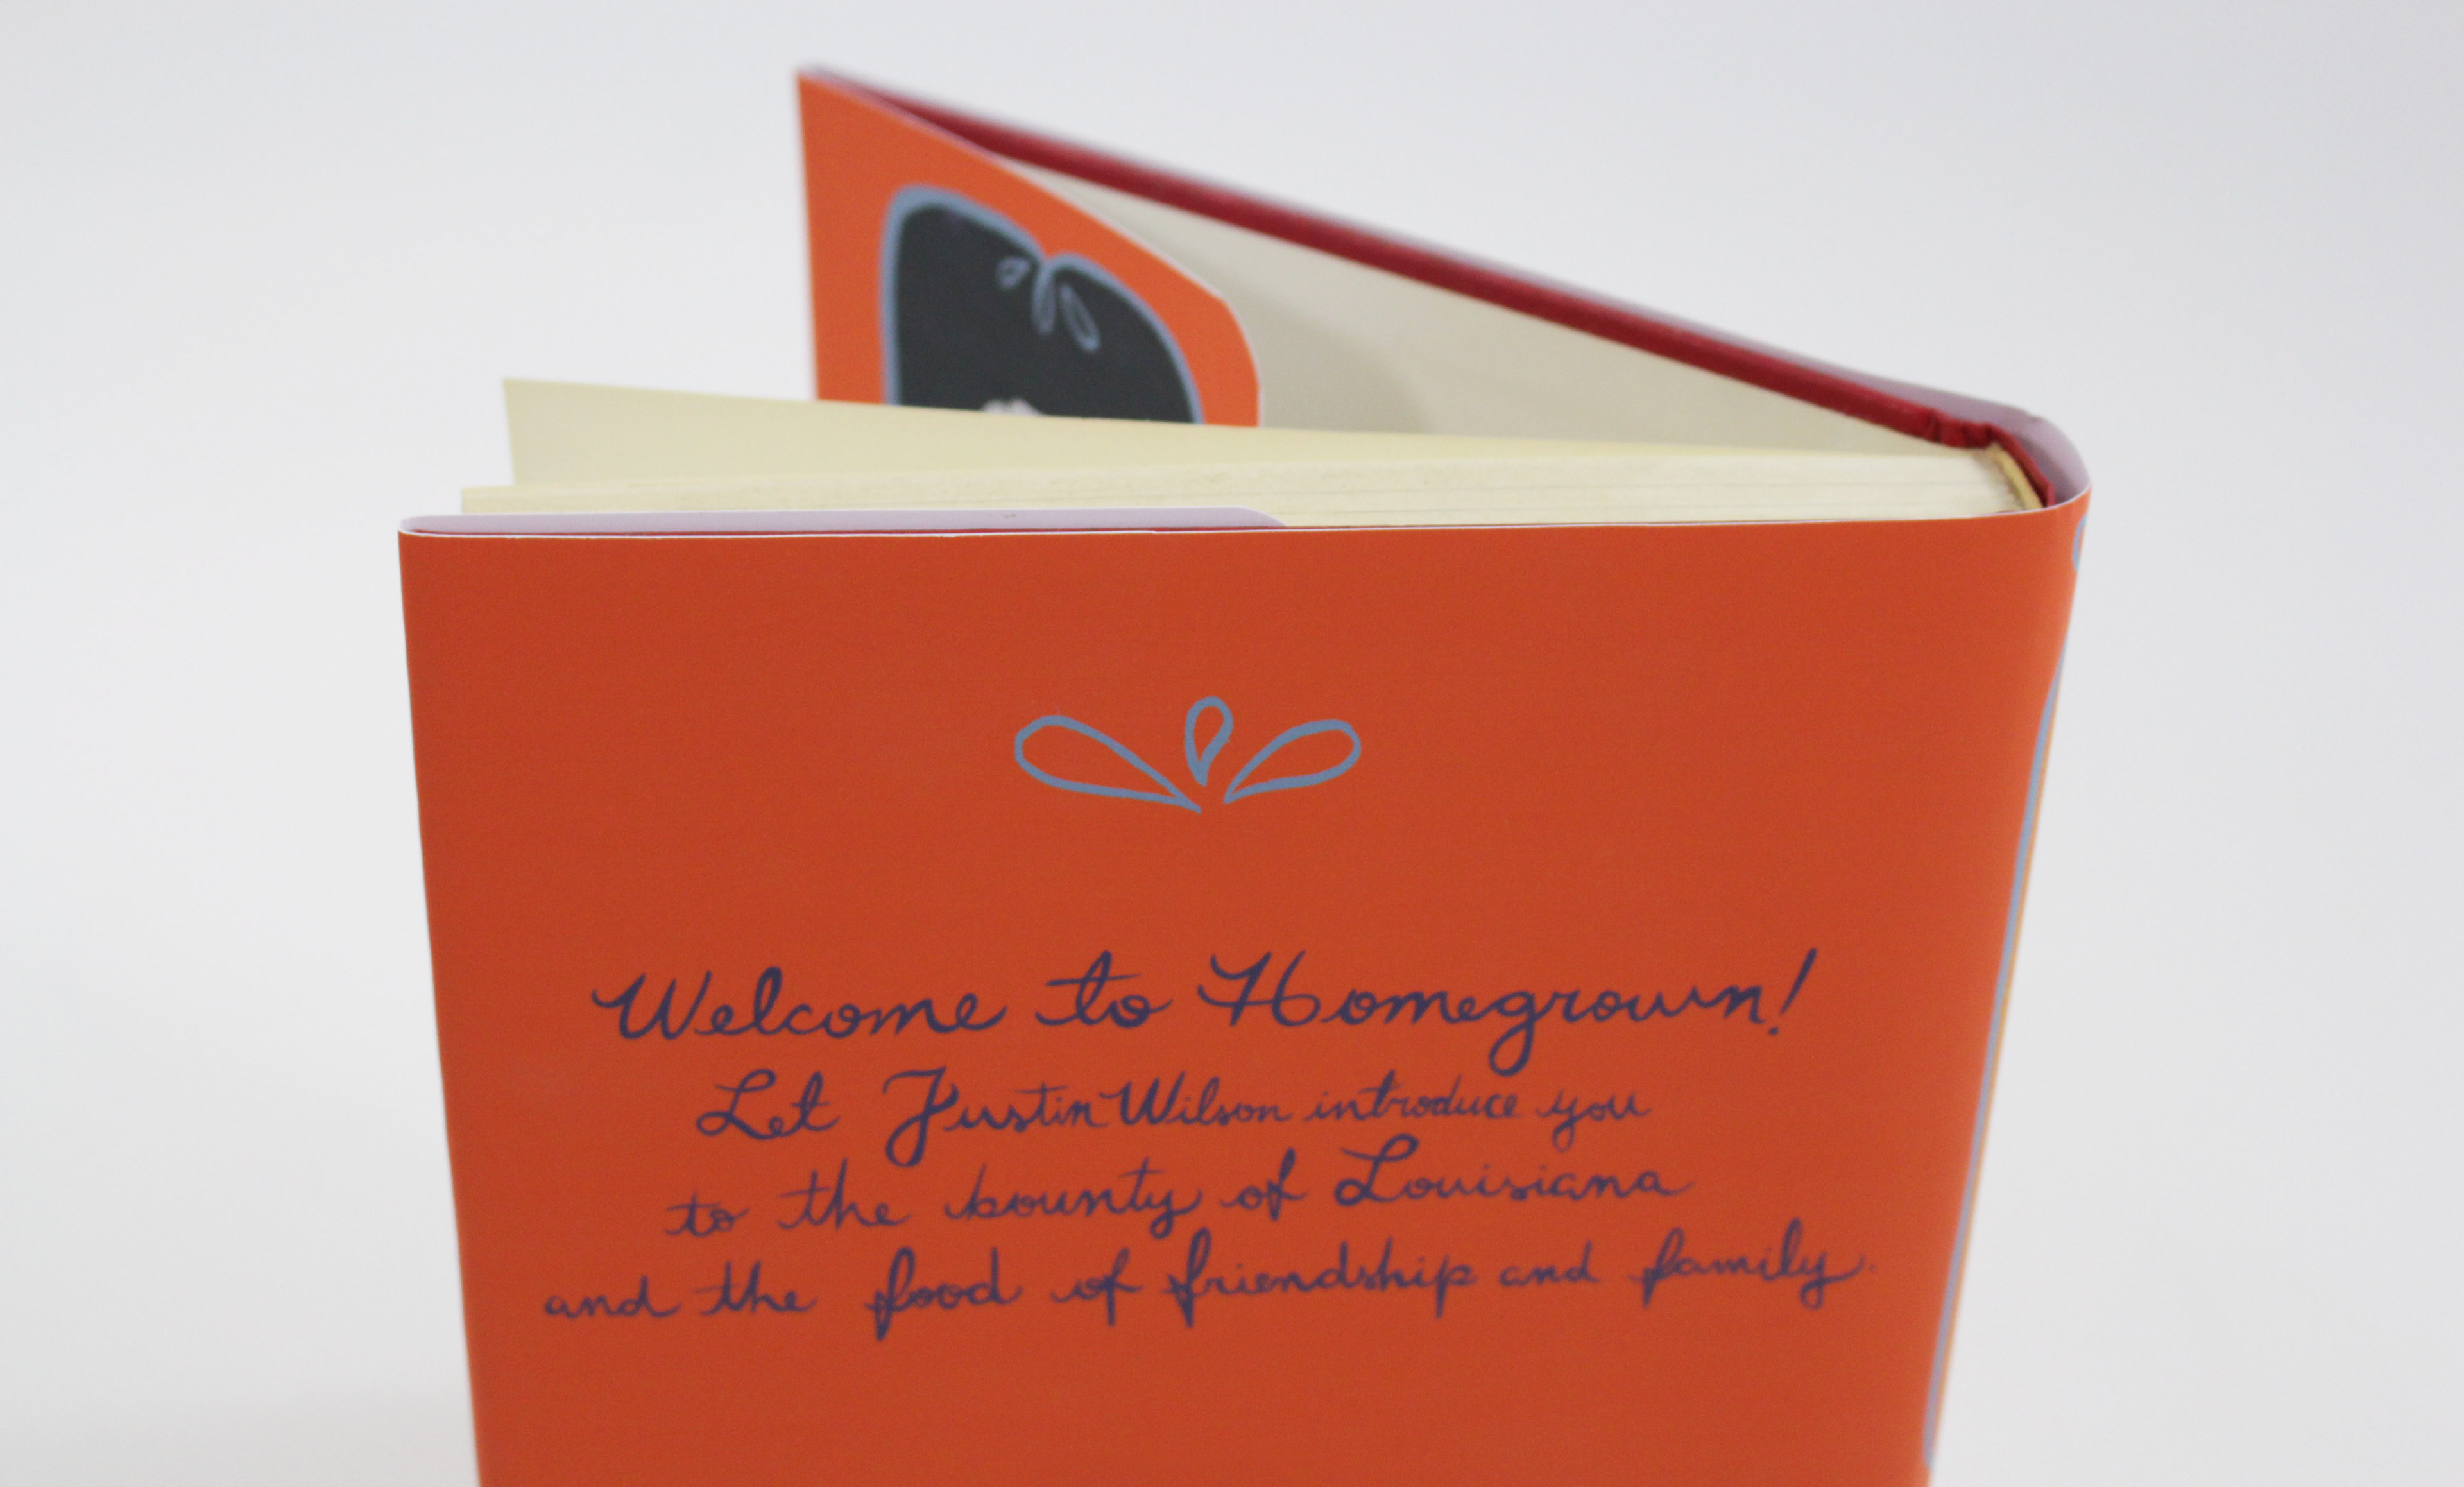 Welcome to Homegrown!
Let Justin Wilson introduce you
to the bounty of Louisiana
and the food of friendship and family.